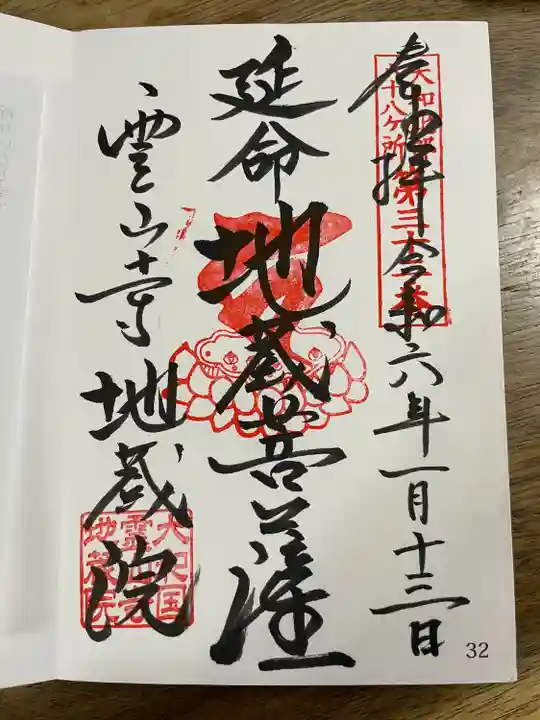 奉拝 令和六年一月十三日
延命地蔵菩薩
霊山寺地蔵院
十八ヶ所
第三十
番
大和国
霊山寺
地蔵院
32